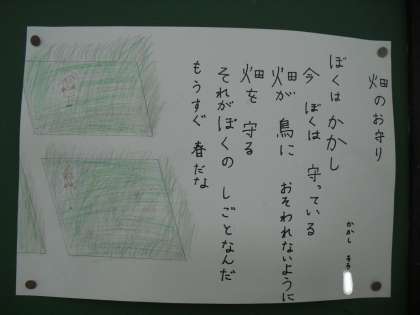 畑のお守り
かかし
ぼくは かかし
今 ぼくは 守っている
畑が 鳥に おそわれないように
畑を 守る
それがぼくの しごとなんだ
もうすぐ 春だな